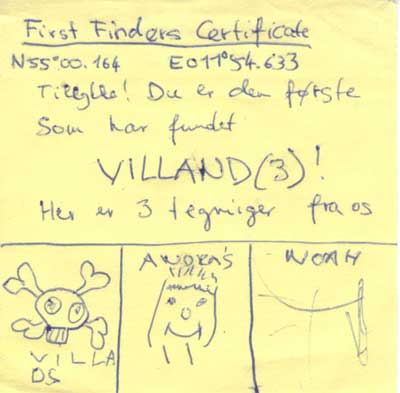 First Finders Certificate
N55°00.164 E011°54.633
Tillykke! Du er den første
som har fundet
VILLAND(3)!
Her er 3 tegninger fra os
VILLA
DS
NOAH